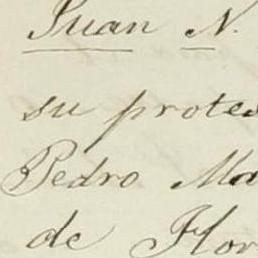 Juan N.
su protes
Pedro Ma
de Flor